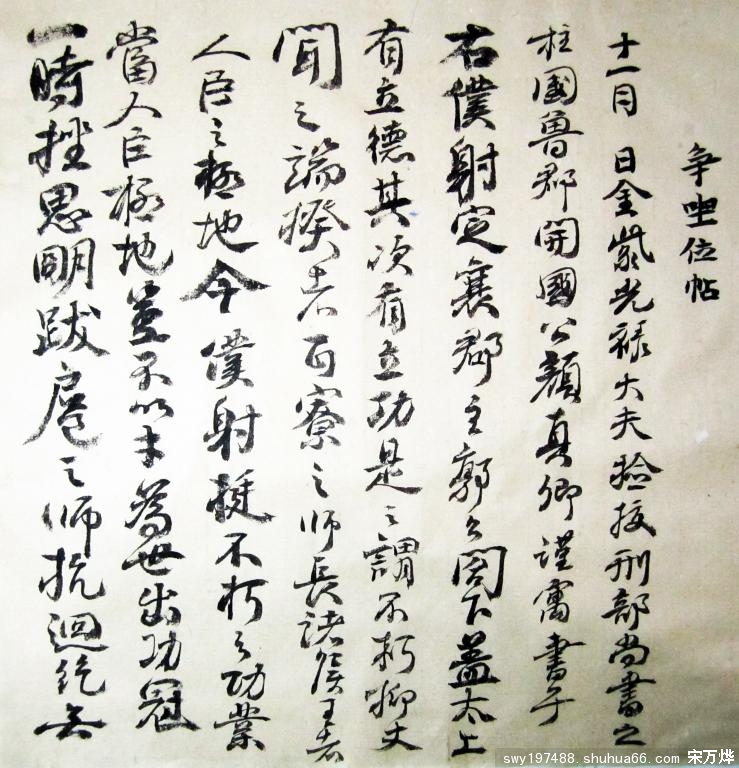 争坐位帖
十一月 日金紫光禄大夫检校刑部尚書上
柱國魯郡開國公顏真卿謹寓書于
右僕射定襄郡王郭公閣下蓋太上
有立德其次有立功是之謂不朽抑又
聞之端揆者百寮之师長諸侯王者
人臣之極地今僕射挺不朽之功業
當人臣極地豈不以才為世出功冠
一時挫思明跋扈之师抗迴紇無
swy197488.shuhua66.com 宋万烨